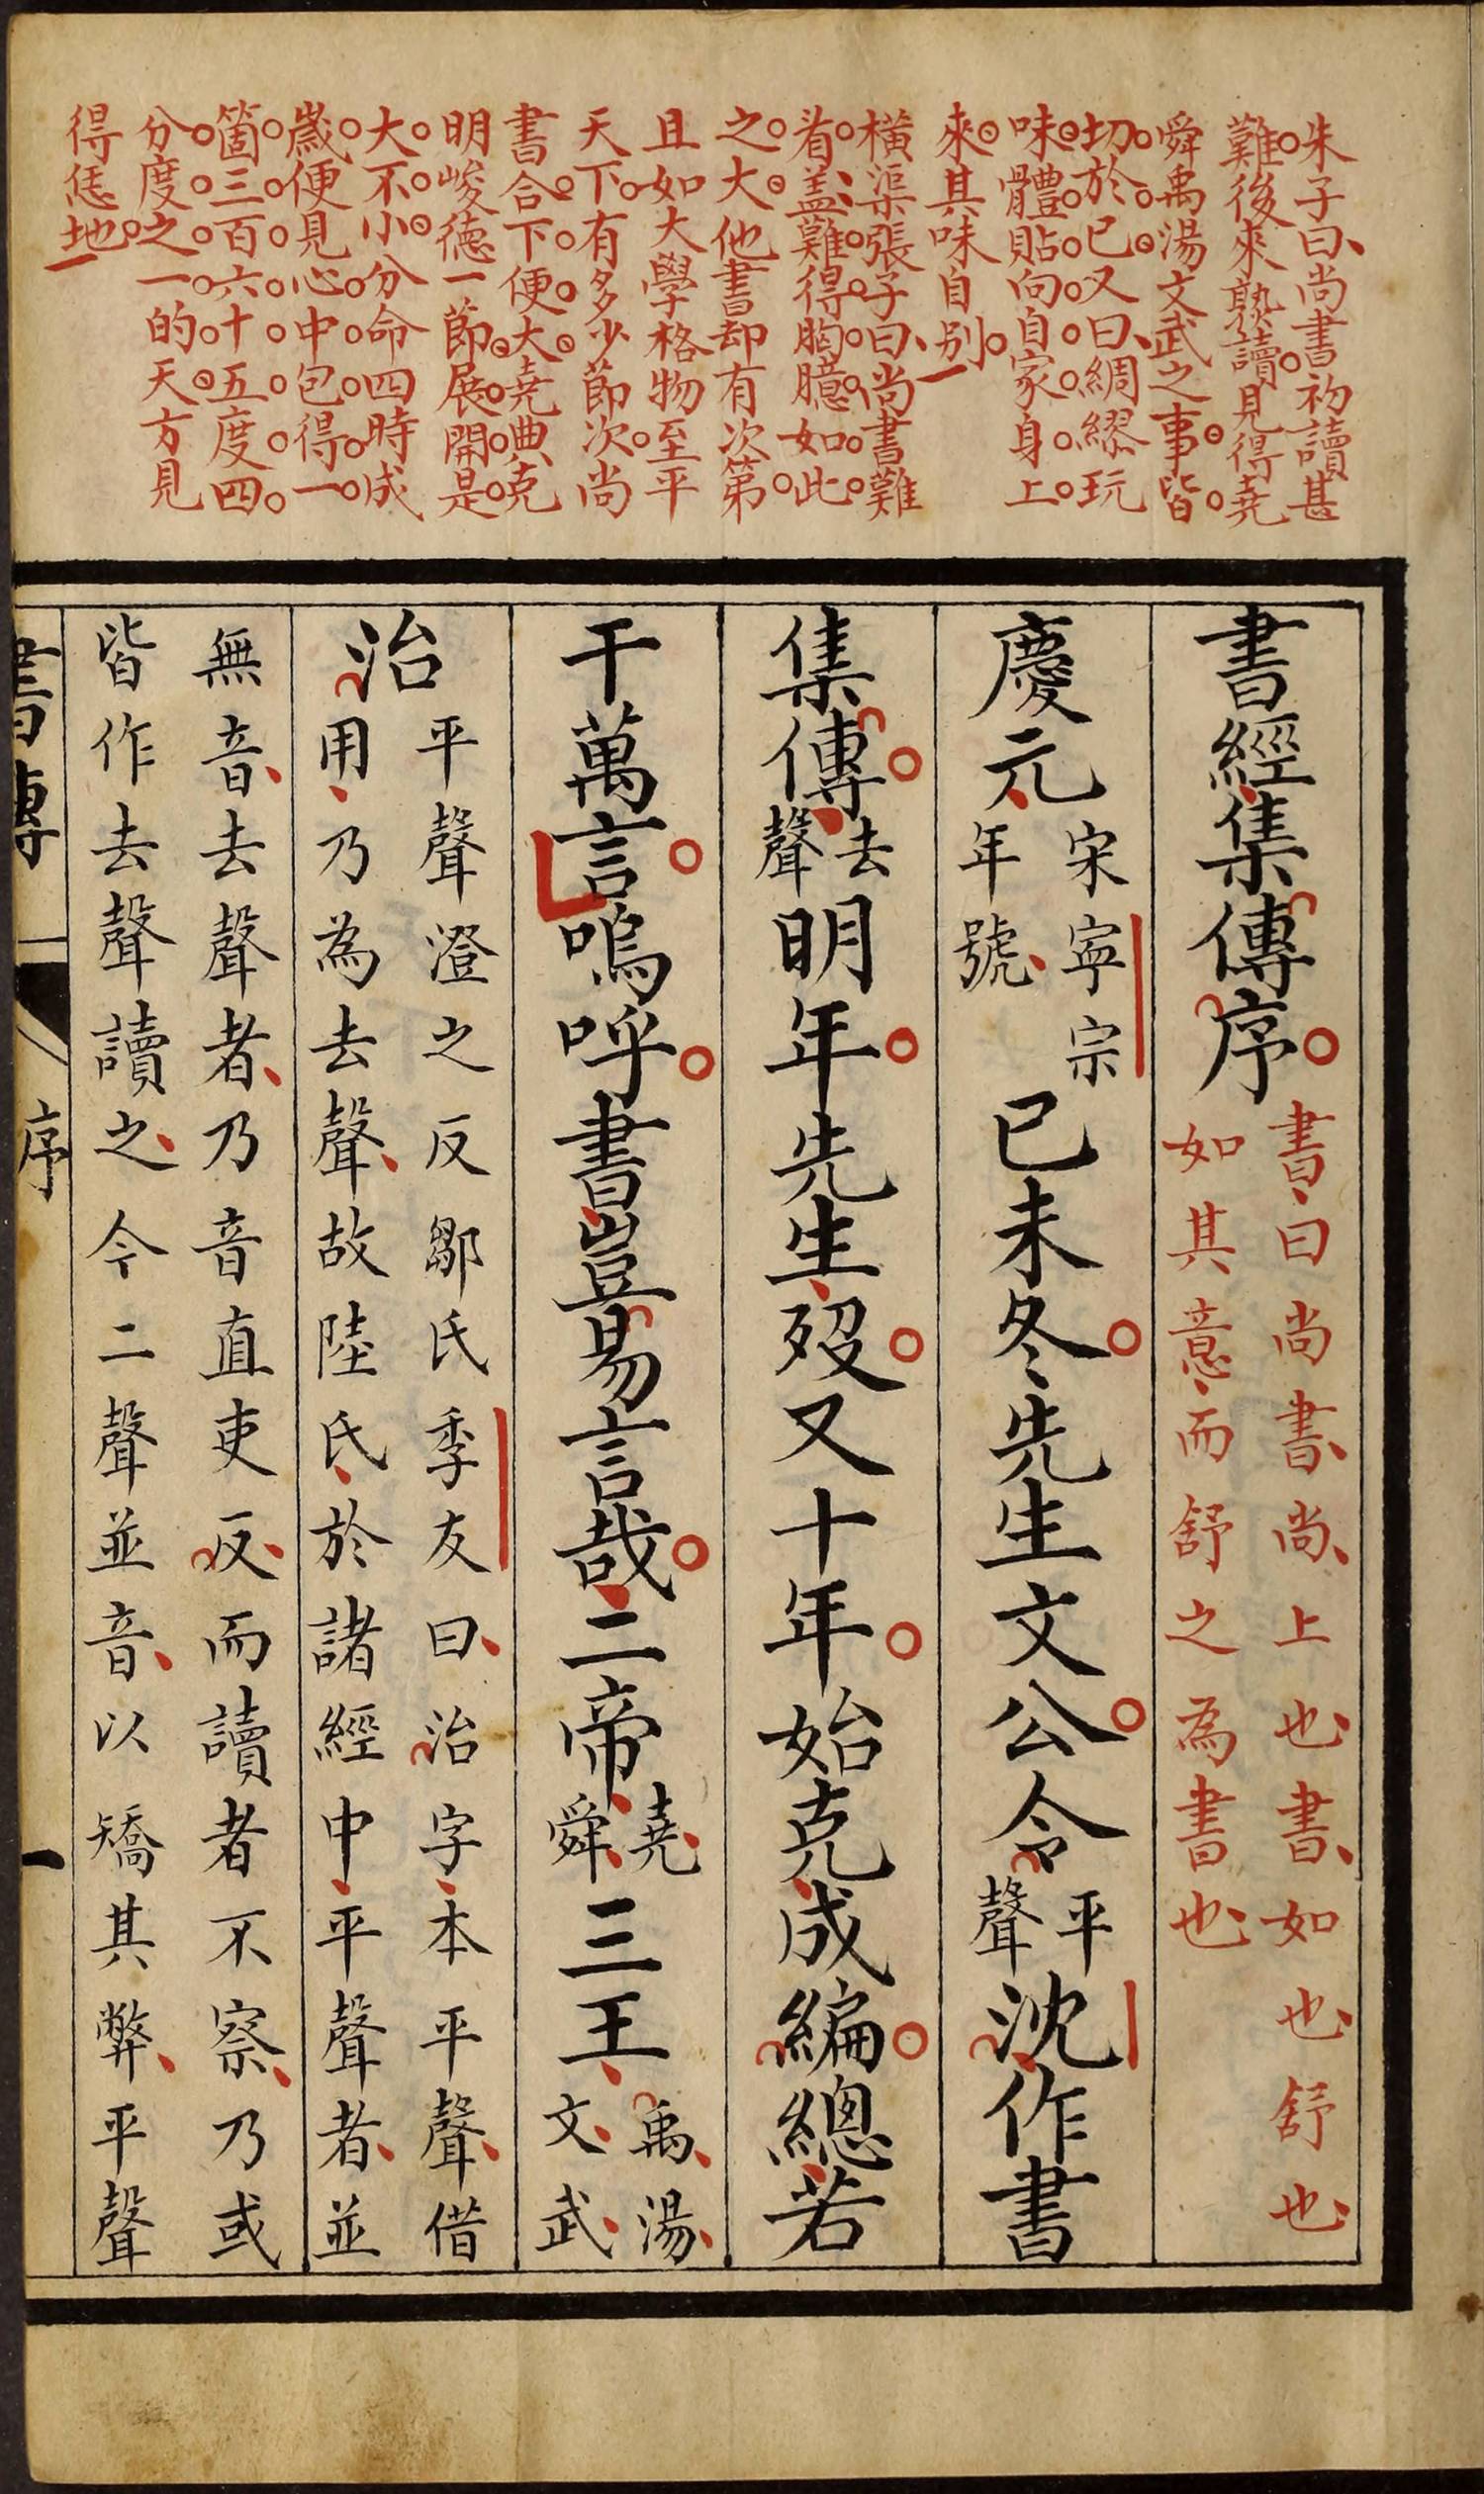 朱子曰尚書初讀甚
難後來熟讀見得堯
舜禹湯文武之事皆
切於己又曰綢繆玩
味體貼向自家身上
來其味自別
橫渠張子曰尚書難
看盖難得胸臆如此
之大他書却有次第
且如大學格物至平
天下有多少節次尚
書合下便大堯典克
明峻德一節展開是
大不小分命四時成
歲便見心中包得一
箇三百六十五度四
分度之一的天方見
得恁地
書經集傳序
書曰尚書尚上也書如也舒也
如其意而舒之為書也
慶元
宋寧宗
年號
已未冬先生文公令
平
聲
沈作書
集傳
去
聲
明年先生歿又十年始克成編總若
干萬言嗚呼書豈易言哉二帝
堯
舜
三王
禹湯
文武
治
平聲澄之反鄒氏季友曰治字本平聲借
用乃為去聲故陸氏於諸經中平聲者並
無音去聲者乃音直吏反而讀者不察乃或
皆作去聲讀之今二聲並音以矯其弊平聲
書傳
序
一